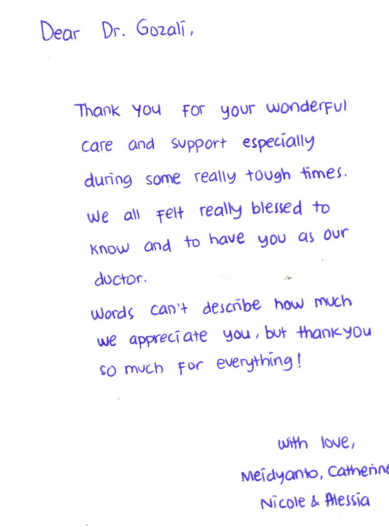 Dear Dr. Gozali,
Thank you for your wonderful
care and support especially
during some really tough times.
We all felt really blessed to
know and to have you as our
doctor.
Words can't describe how much
we appreciate you, but thank you
so much for everything!
With love,
Meidyanto, Catherine
Nicole & Alessia